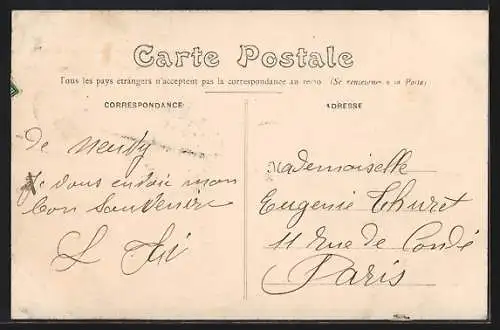 Carte Postale
Tous les pays étrangers n'acceptent pas la correspondance au recto (Se renseigner à la Poste)
CORRESPONDANCE
de Neuvy
Je vous envoie mon
bon souvenir
L
ADRESSE
Mademoiselle
Eugenie Thuret
11 rue de Condé
Paris